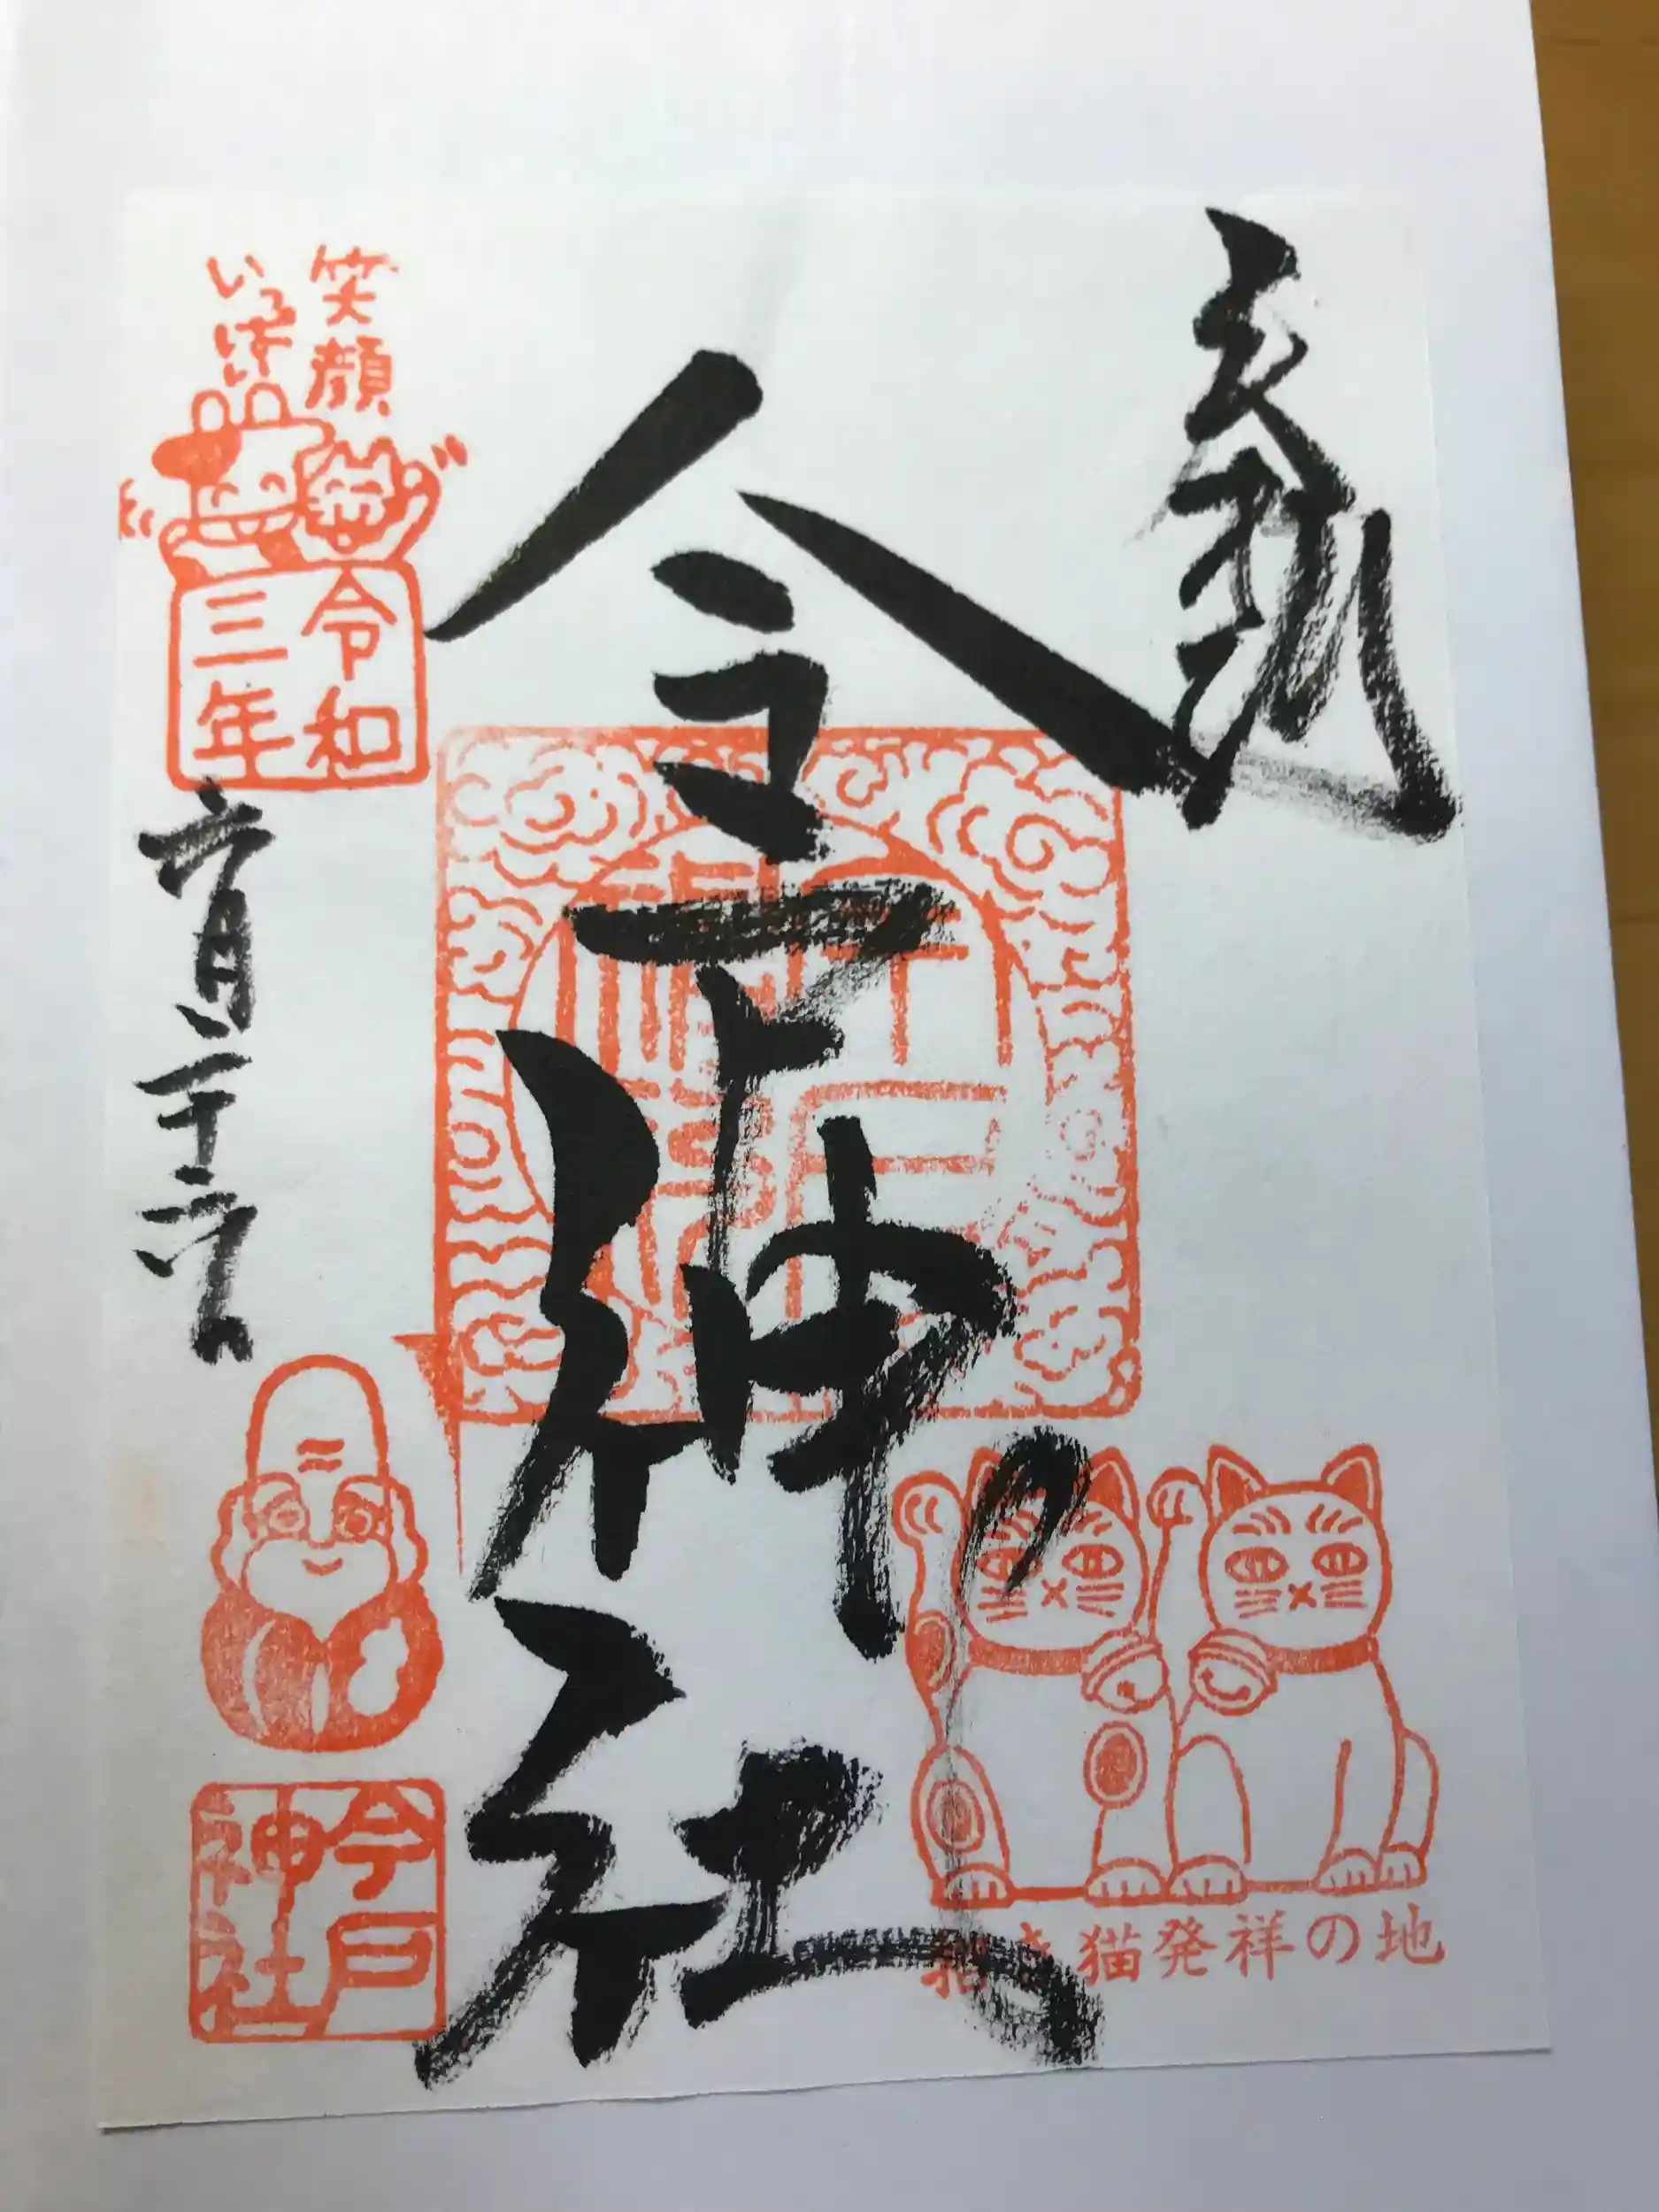 奉拝
今戸神社
招き猫発祥の地
笑顔
いっぱい
令和
三年
六月二十六日
今戸
神社